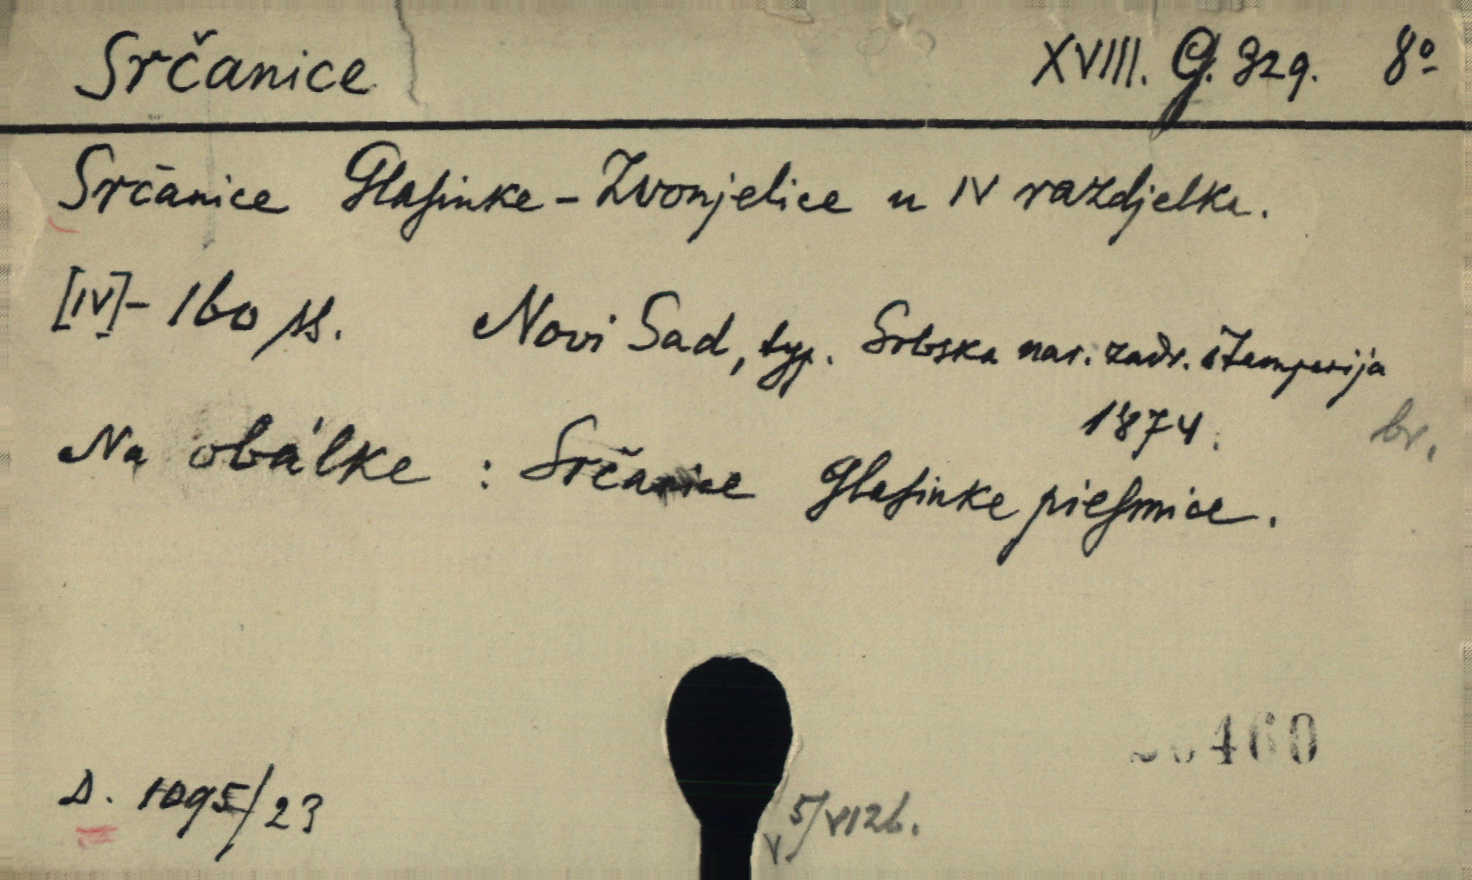 Srčanice XVIII. G. 329. 8º
Srčanice Glasinke - Zvonjelice u IV razdjelka.
[IV] - 160 ss. Novi Sad, typ. Srbska nar. zadr. štamparija
1874. br.
Na obálke : Srčanice Glasinke piesmice.
460
D. 1095/23
5/VI 26.